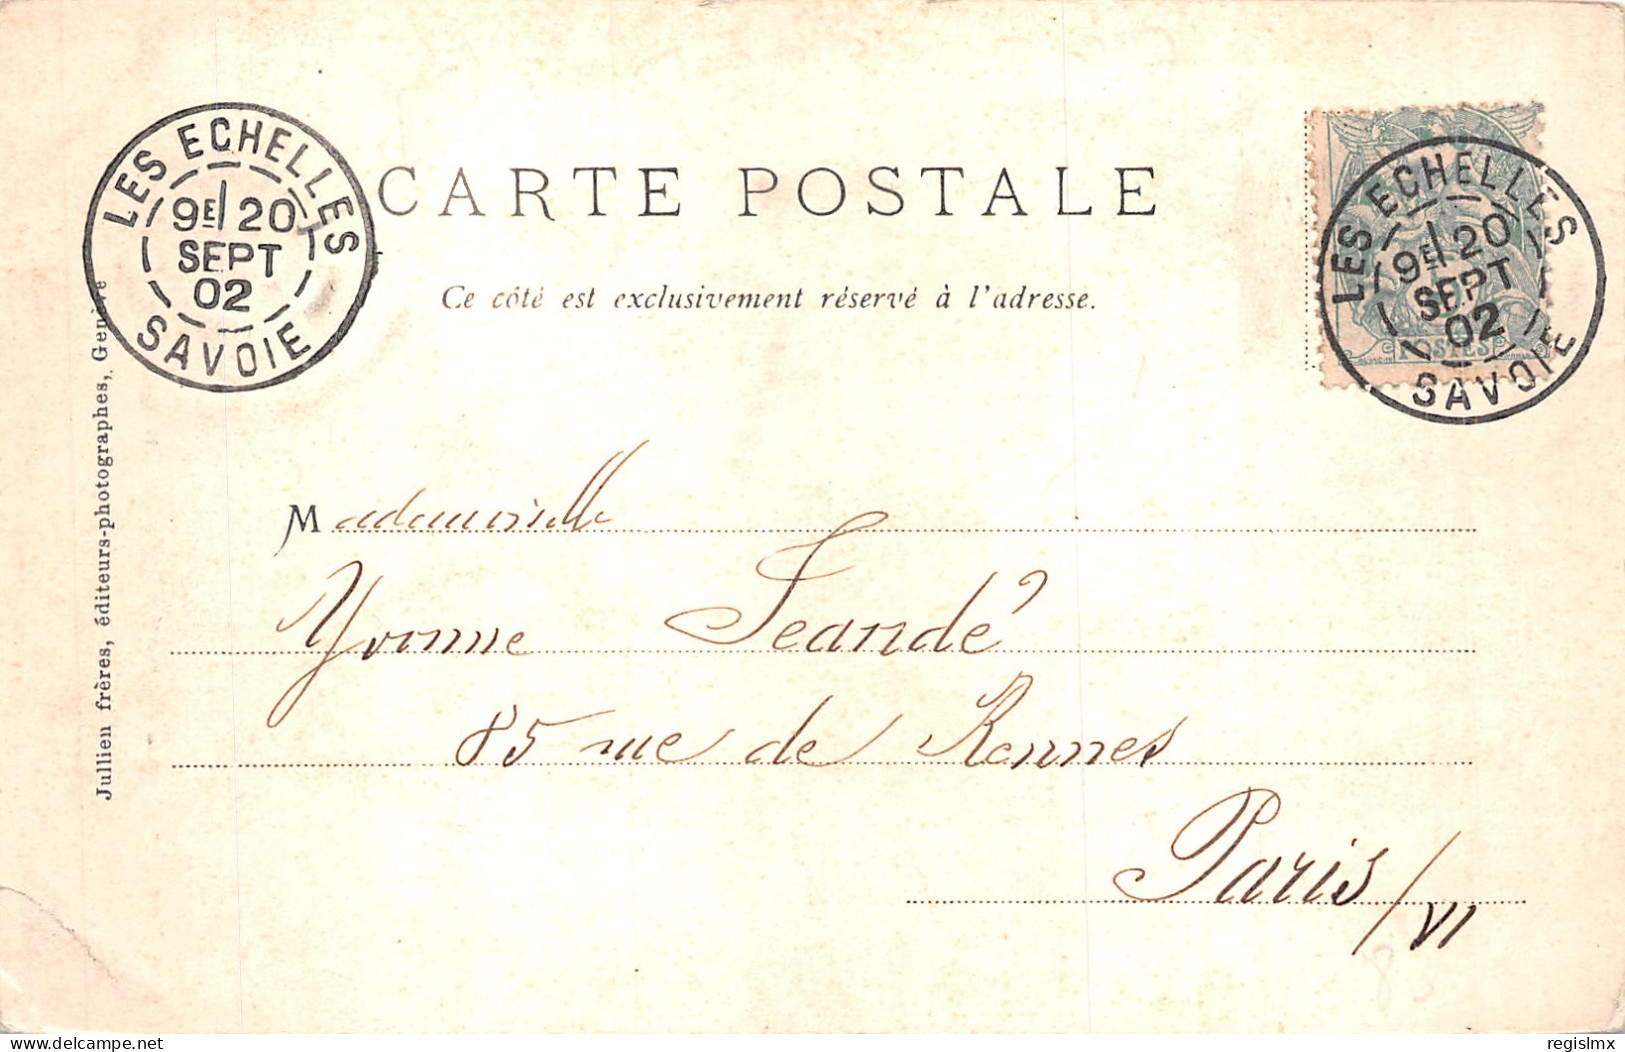 LES ECHELLES
9E 20
SEPT
02
SAVOIE
CARTE POSTALE
Ce côté est exclusivement réservé à l'adresse.
LES ECHELLES
9E 20
SEPT
02
SAVOIE
POSTES
Jullien frères, éditeurs-photographes, Genève
Mademoiselle
Yvonne Seandé
85 rue de Rennes
Paris/VI
delcampe.net
regislmx